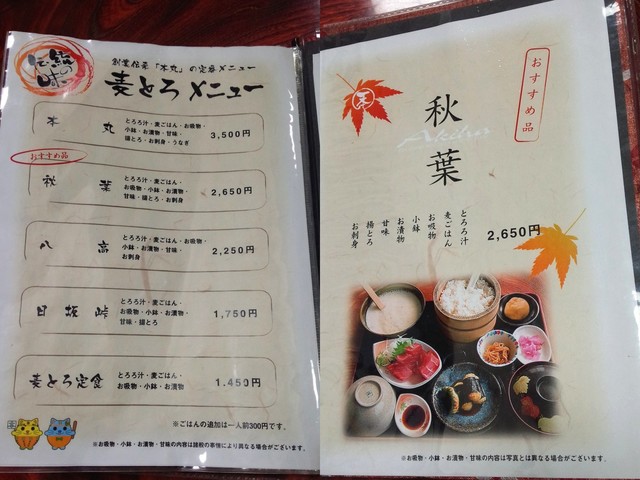 伝統の味
創業伝承「本丸」の定番メニュー
麦とろメニュー
本丸
とろろ汁・麦ごはん・お吸物・
小鉢・お漬物・甘味・
揚とろ・お刺身・うなぎ
3,500円
おすすめ品
秋葉
とろろ汁・麦ごはん・
お吸物・小鉢・お漬物・
甘味・揚とろ・お刺身
2,650円
八高
とろろ汁・麦ごはん・
お吸物・
小鉢・お漬物・甘味・
お刺身
2,250円
日坂峠
とろろ汁・麦ごはん・
お吸物・小鉢・お漬物・
甘味・揚とろ
1,750円
麦とろ定食
とろろ汁・麦ごはん・
お吸物・小鉢・お漬物
1.450円
※ごはんの追加は一人前300円です。
※お吸物・小鉢・お漬物・甘味の内容は諸般の事情により異なる場合がございます。
おすすめ品
本
秋葉
Akiha
とろろ汁
麦ごはん
お吸物
小鉢
お漬物
甘味
揚とろ
お刺身
2,650円
※お吸物・小鉢・お漬物・甘味の内容は写真とは異なる場合がございます。